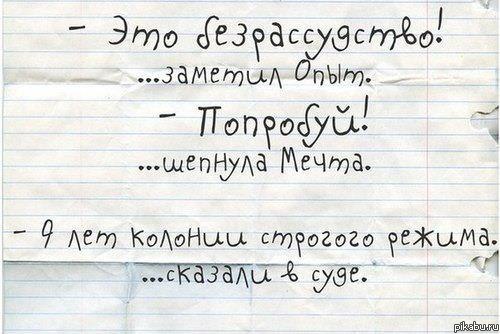 - Это безрассудство!
...заметил Опыт.
- Попробуй!
...шепнула Мечта.
- 9 лет колонии строгого режима.
...сказали в суде.
pikabu.ru